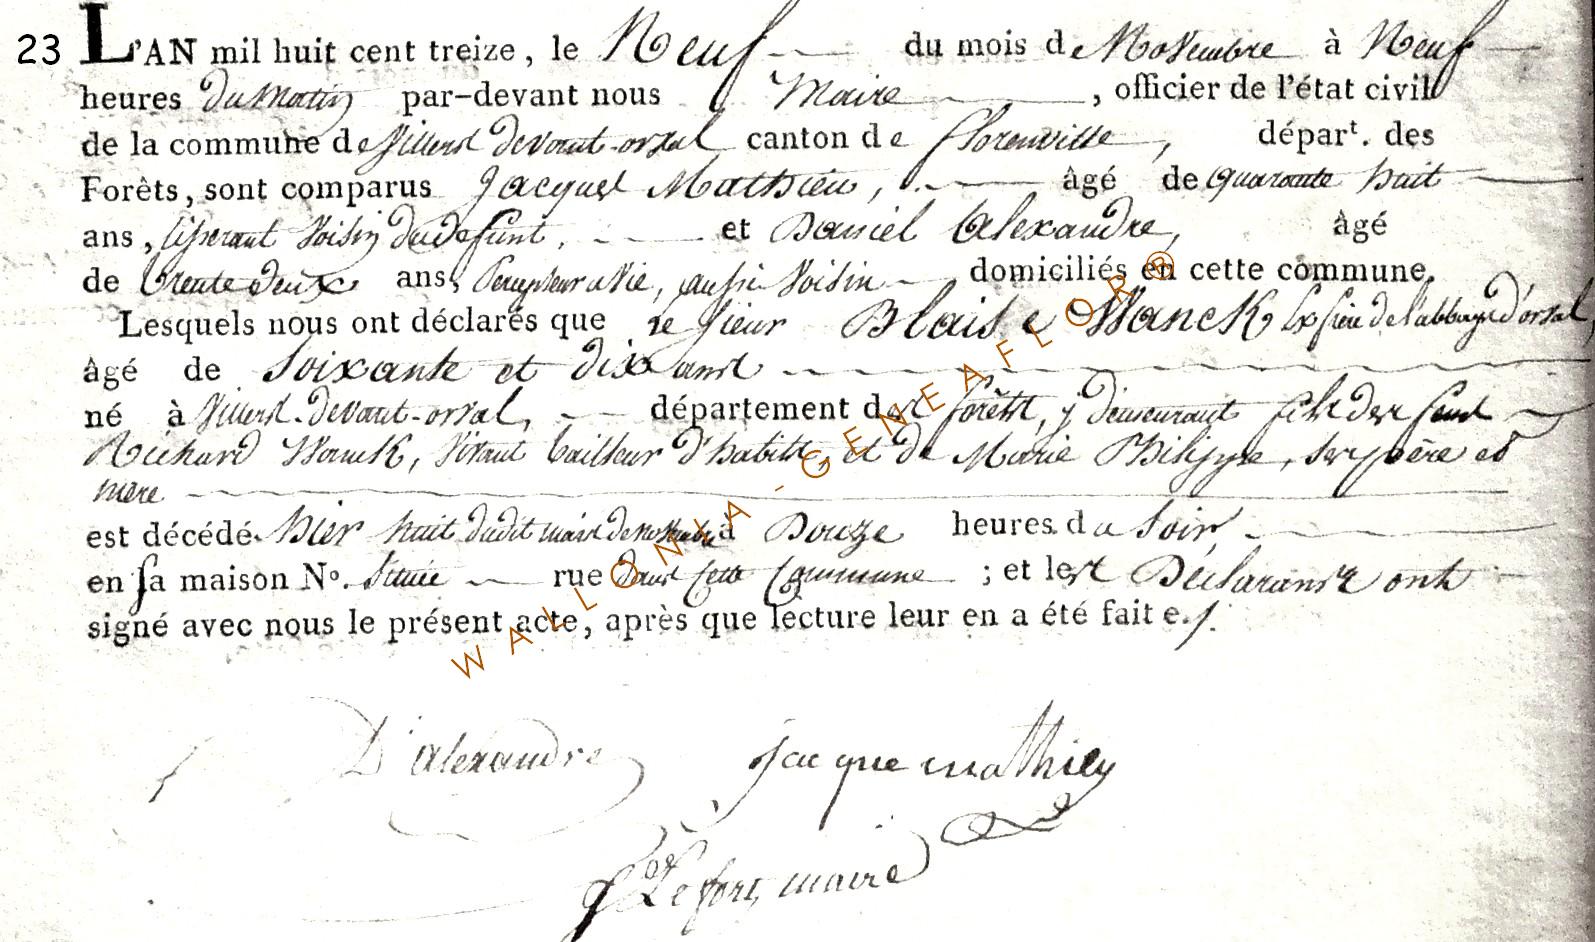 23 L'AN mil huit cent treize, le Neuf du mois de Novembre à Neuf
heures du Matin par-devant nous Maire, officier de l'état civil
de la commune de Villers devant-orval canton de florenville, départ. des
Forêts, sont comparus Jacques Mathieu, âgé de quarante huit
ans, voisin du defunt, et Daniel Alexandre, âgé
de trente deux ans, Percepteur à vie, aussi Voisin domiciliés en cette commune.
Lesquels nous ont déclarés que le sieur Blaise Wanck Ex frère de l'abbaye d'orval,
âgé de Soixante et dix ans
né à Villers-devant-orval, département des forêts, y demeurant fils des feus
Richard Wanck, vivant tailleur d'habits, et de Marie Philippe, ses père et
mère
est décédé hier huit dudit mois de novembre à Douze heures du Soir,
en sa maison N°. Située rue dans cette Commune ; et les Déclarants ont
signé avec nous le présent acte, après que lecture leur en a été faite ./.
D'alexandre jacque mathieu
Lefort, maire
WALLONIA-GENEAFLOR®